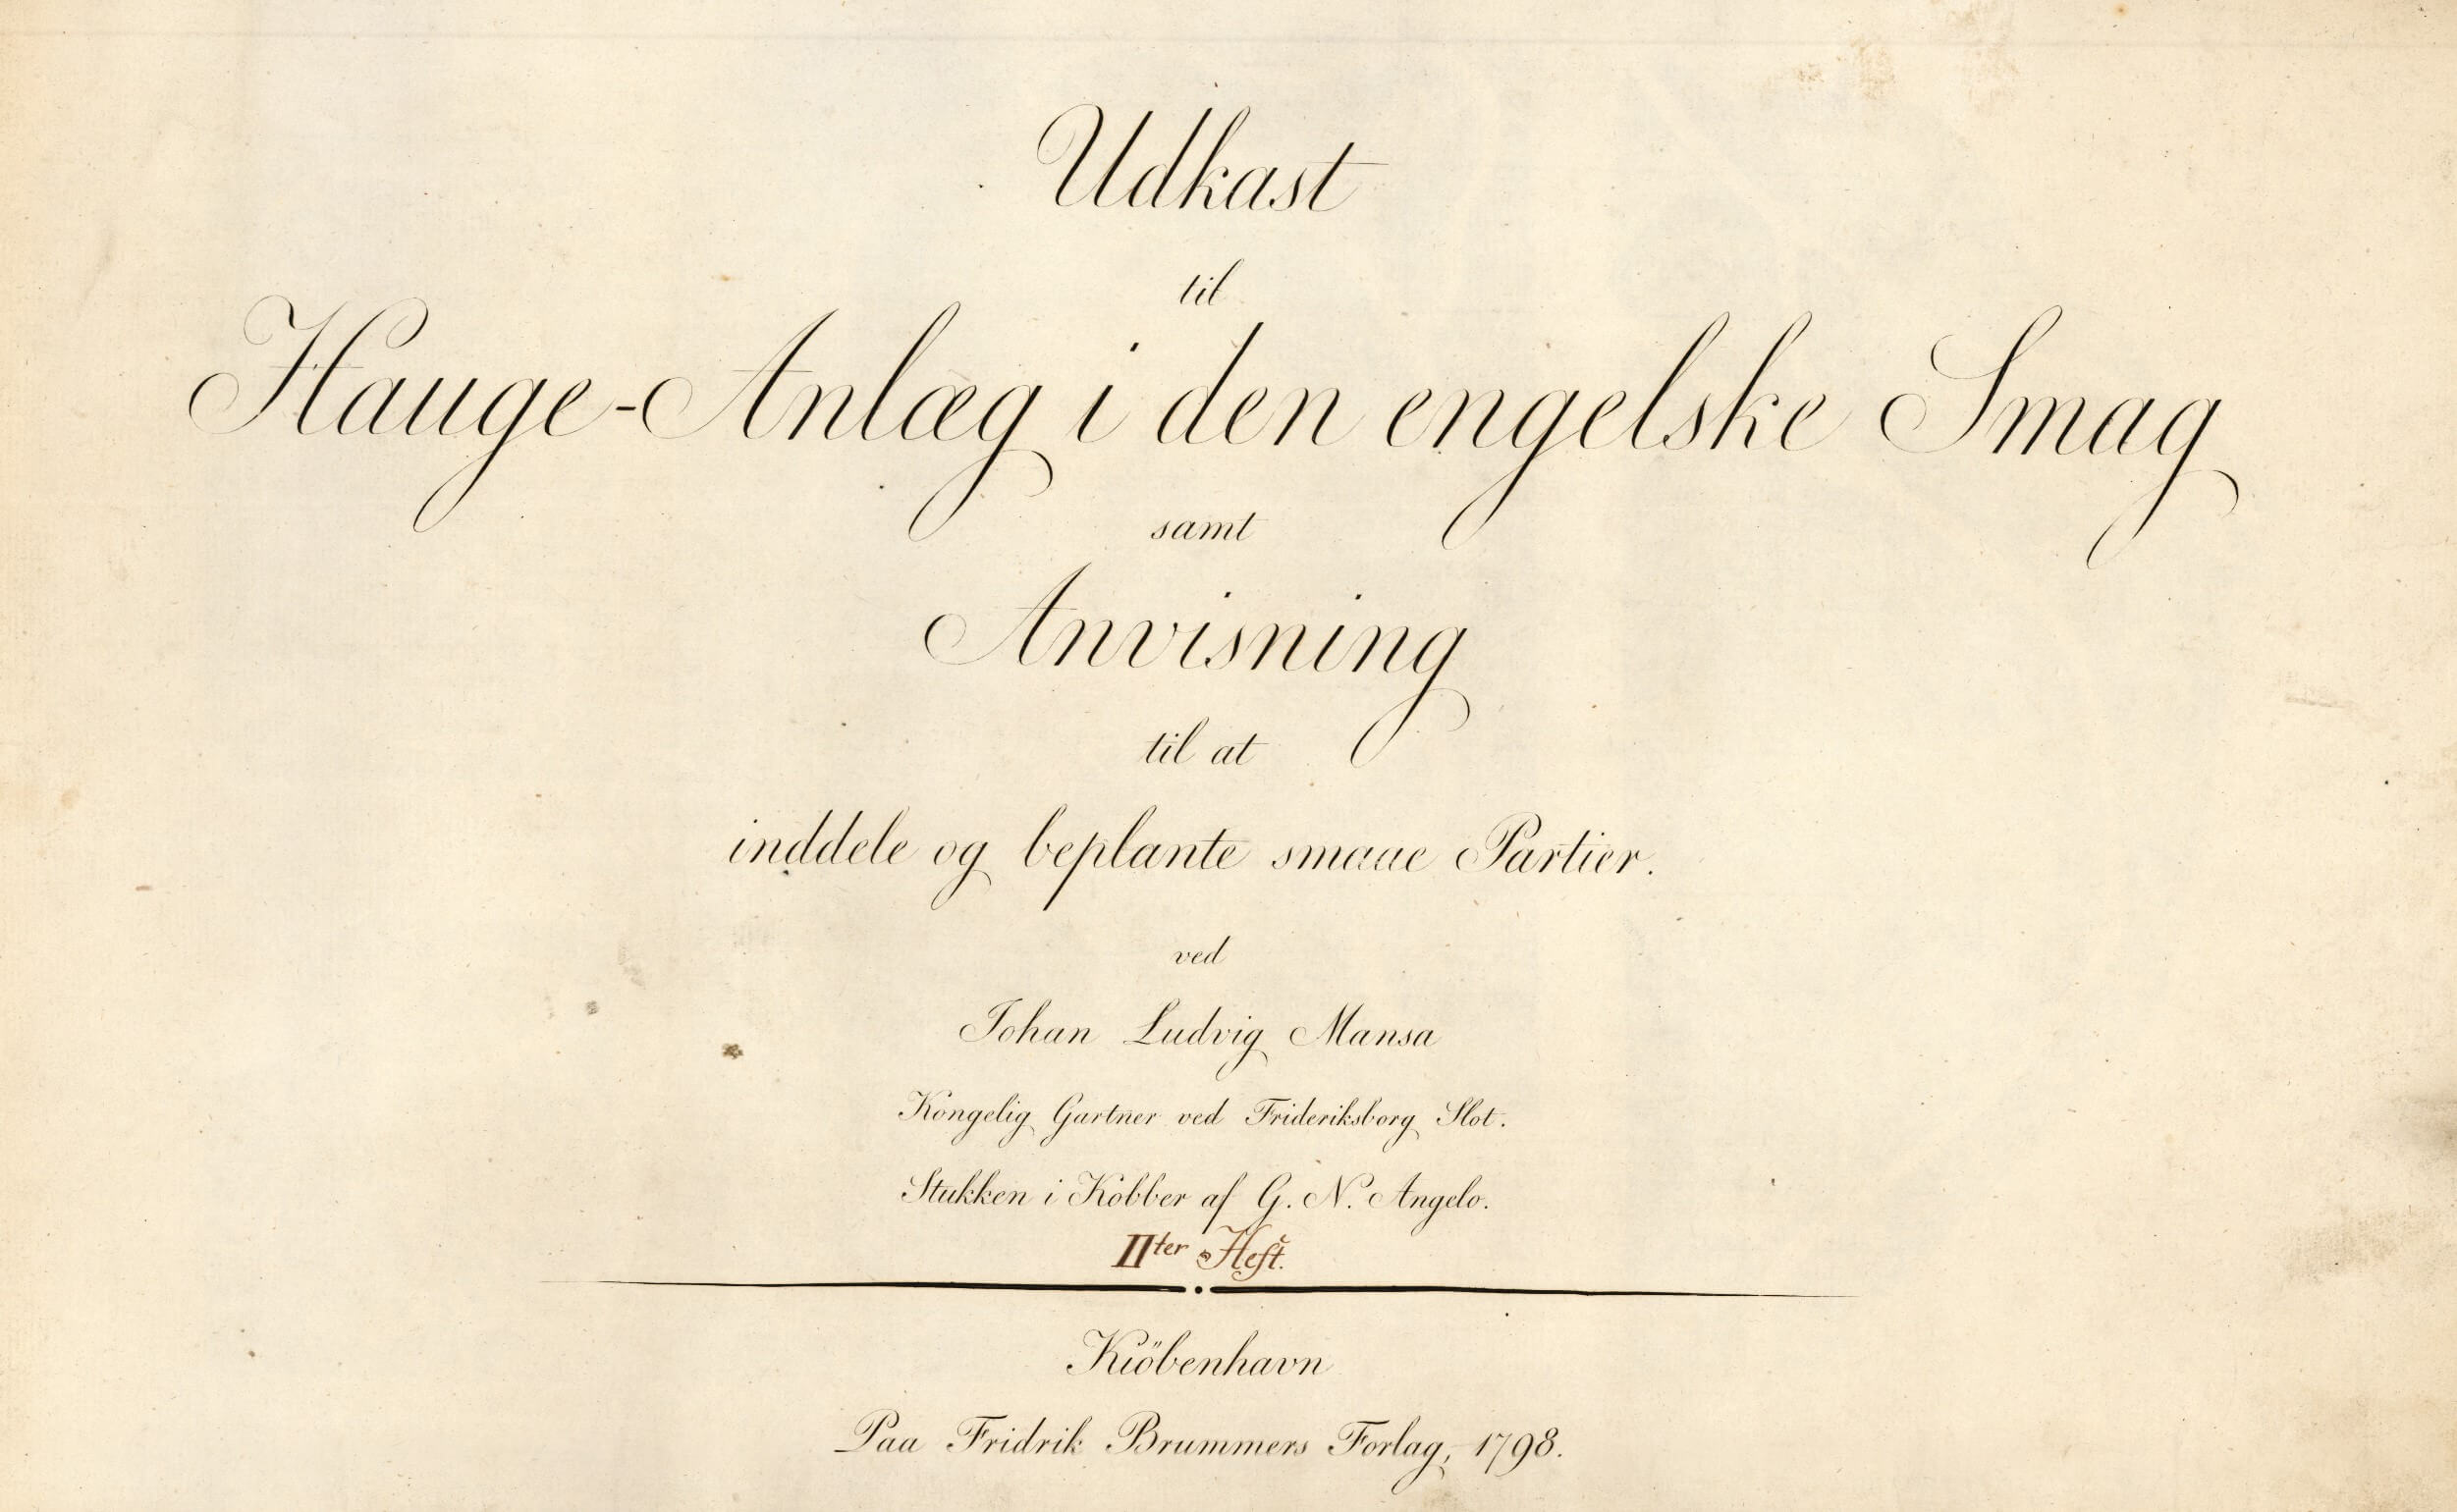 Udkast
til
Hauge-Anlæg i den engelske Smag
samt
Anvisning
til at
inddele og beplante smaae Partier.
ved
Johan Ludvig Mansa
Kongelig Gartner ved Frideriksborg Slot.
Stukken i Kobber af G. N. Angelo.
IIter Heft.
Kiöbenhavn
Paa Fridrik Brummers Forlag, 1798.